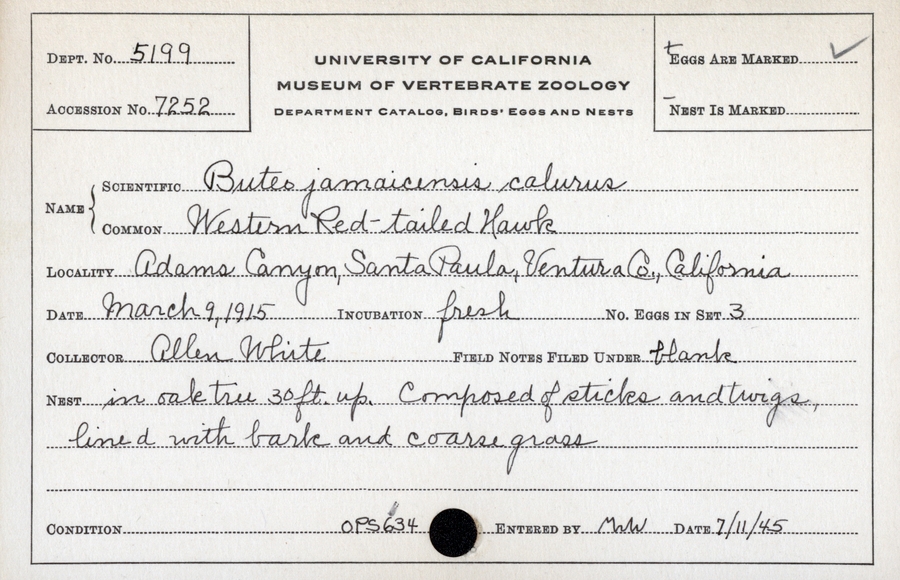 DEPT. No. 5199
ACCESSION No. 7252
UNIVERSITY OF CALIFORNIA
MUSEUM OF VERTEBRATE ZOOLOGY
DEPARTMENT CATALOG, BIRDS' EGGS AND NESTS
EGGS ARE MARKED ✓
NEST IS MARKED
NAME
SCIENTIFIC Buteo jamaicensis calurus
COMMON Western Red-tailed Hawk
LOCALITY Adams Canyon, Santa Paula, Ventura Co., California
DATE March 9, 1915 INCUBATION fresh No. EGGS IN SET 3
COLLECTOR Allen White FIELD NOTES FILED UNDER blank
NEST in oak tree 30 ft. up. Composed of sticks and twigs,
lined with bark and coarse grass
CONDITION OPS634 ENTERED BY DATE 7/11/45